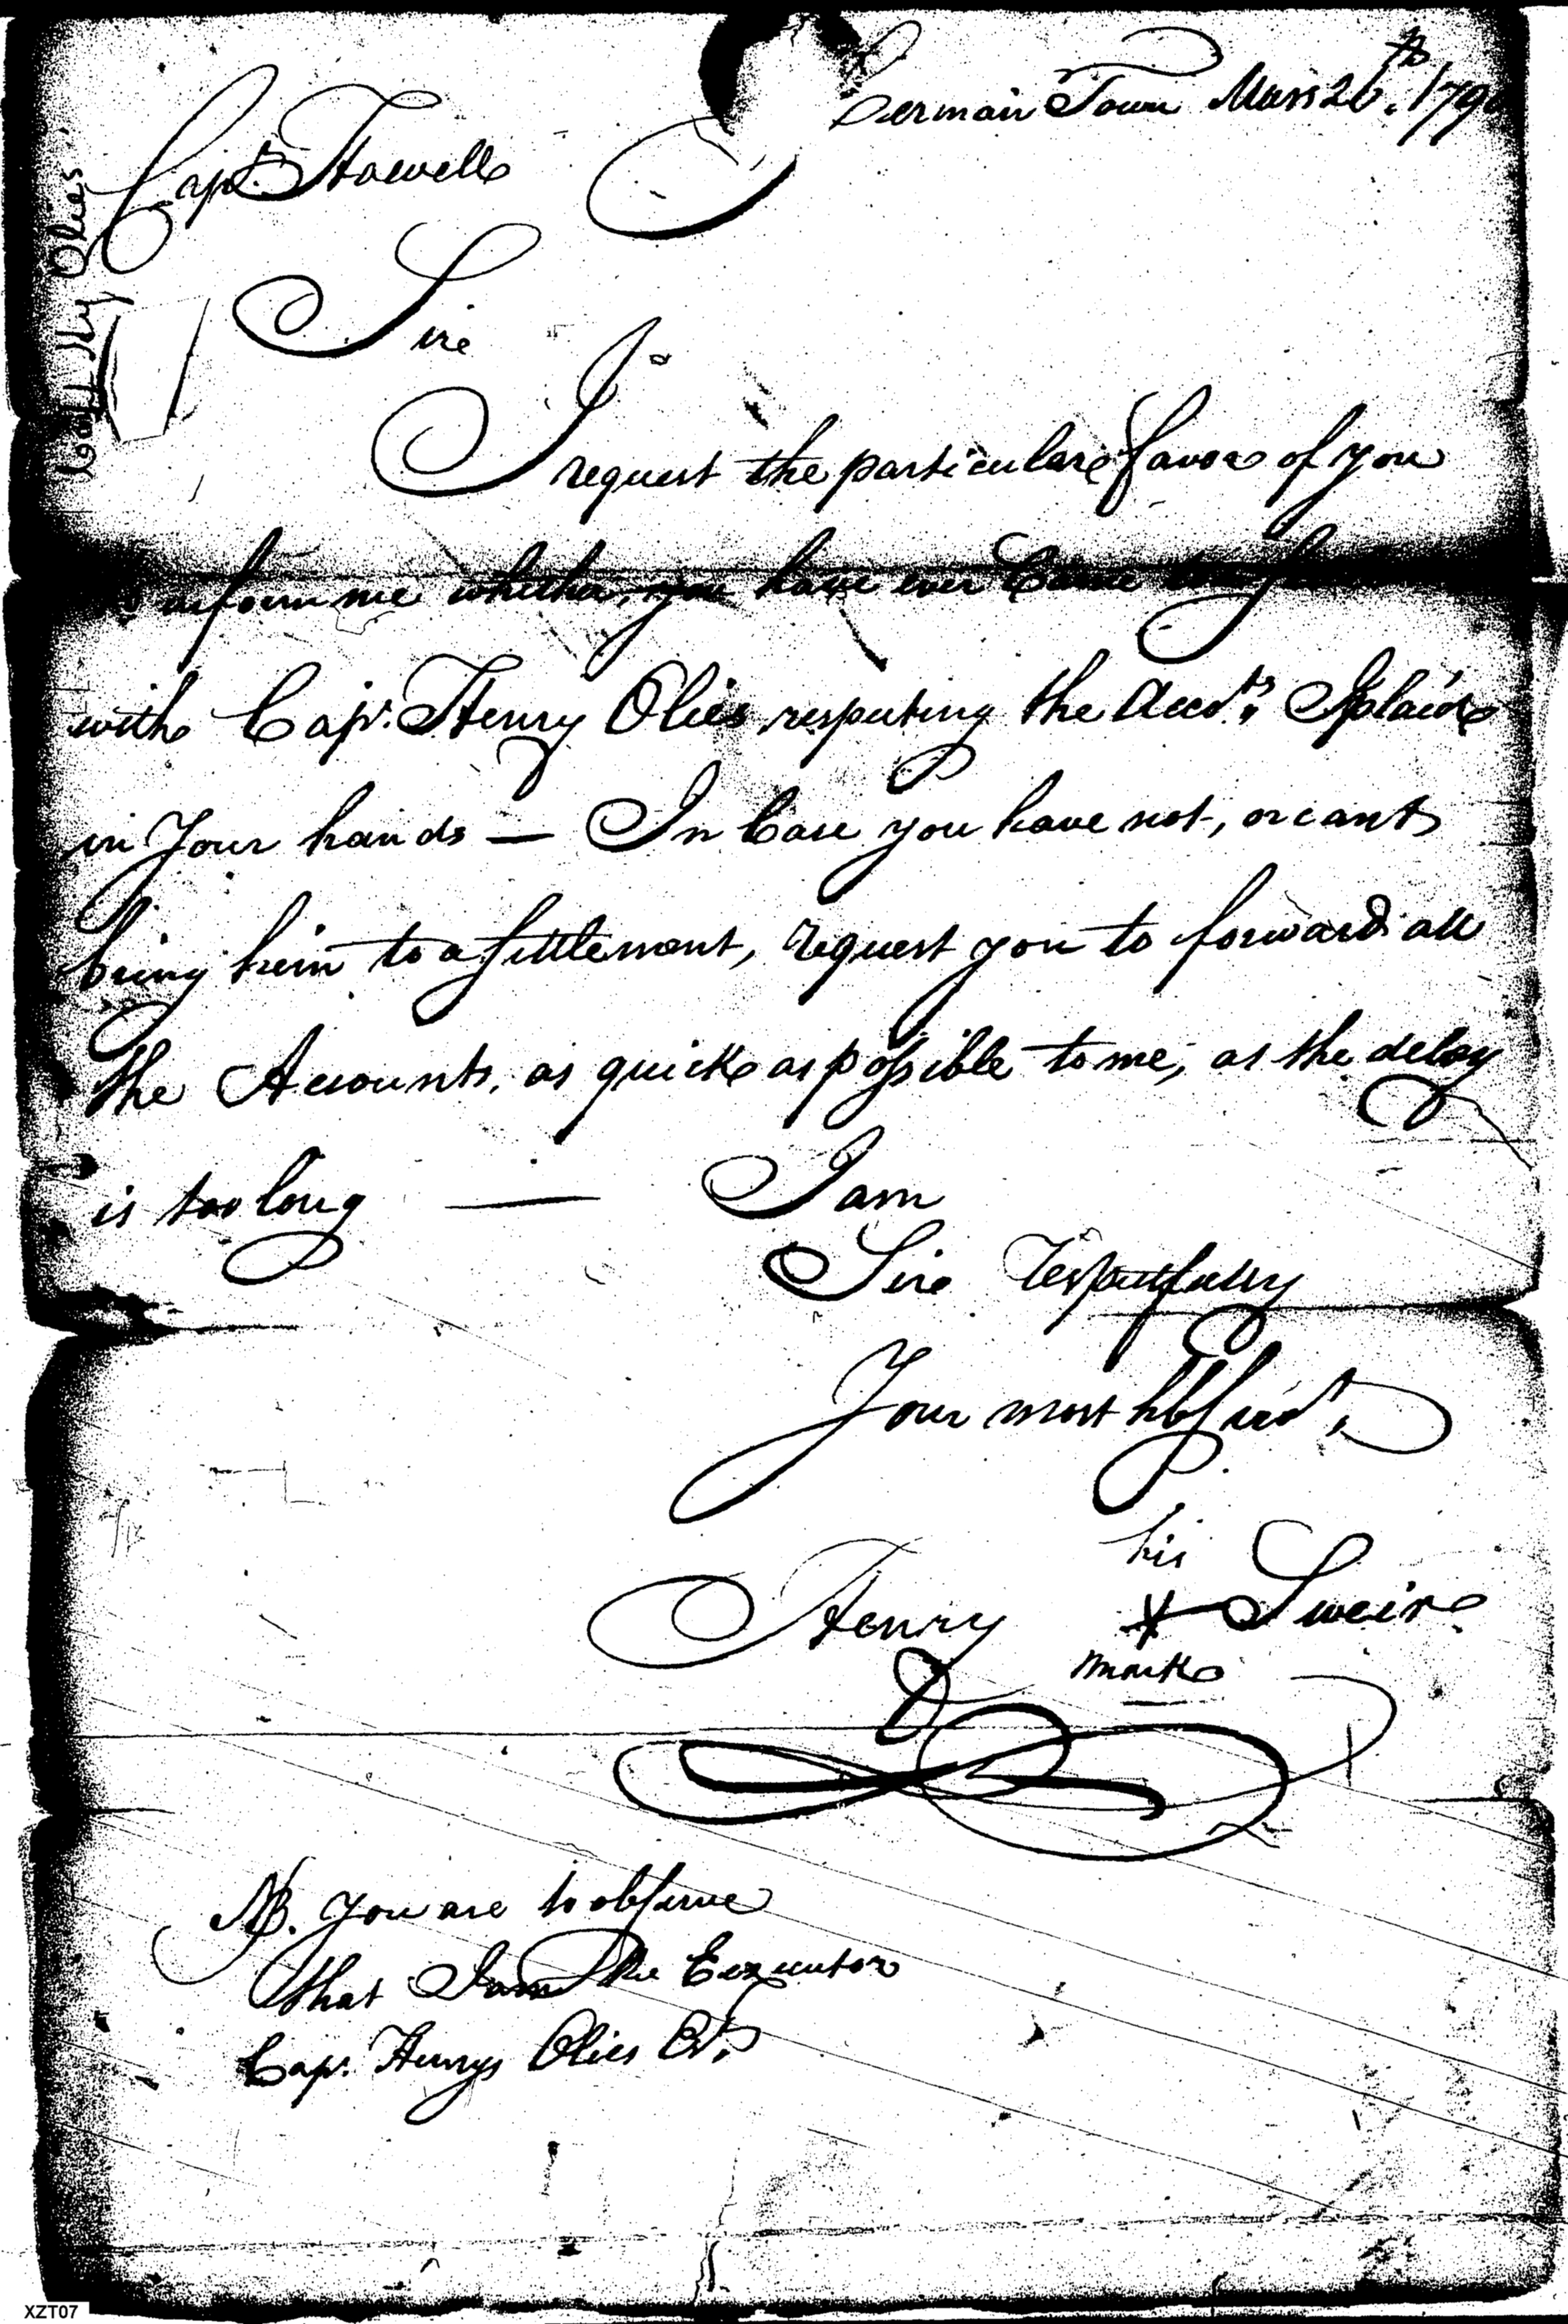 German Town Mars 26th. 179
Capt. Howell
Sir
I request the particular favor of you
to inform me whether you have ever Came to
with Capt. Henry Olies respecting the Accots. I plaid
in Your hands — In Case you have not, or cant
bring him to a Settlement, request you to forward all
the Accounts, as quick as possible to me, as the delay
is too long — I am
Sir respectfully
Your most hbl servt.
his
Henry Sweir
mark
NB. You are to observe
that I am the Executor
Capt. Henrys Olies
Hy Olies
XZT07